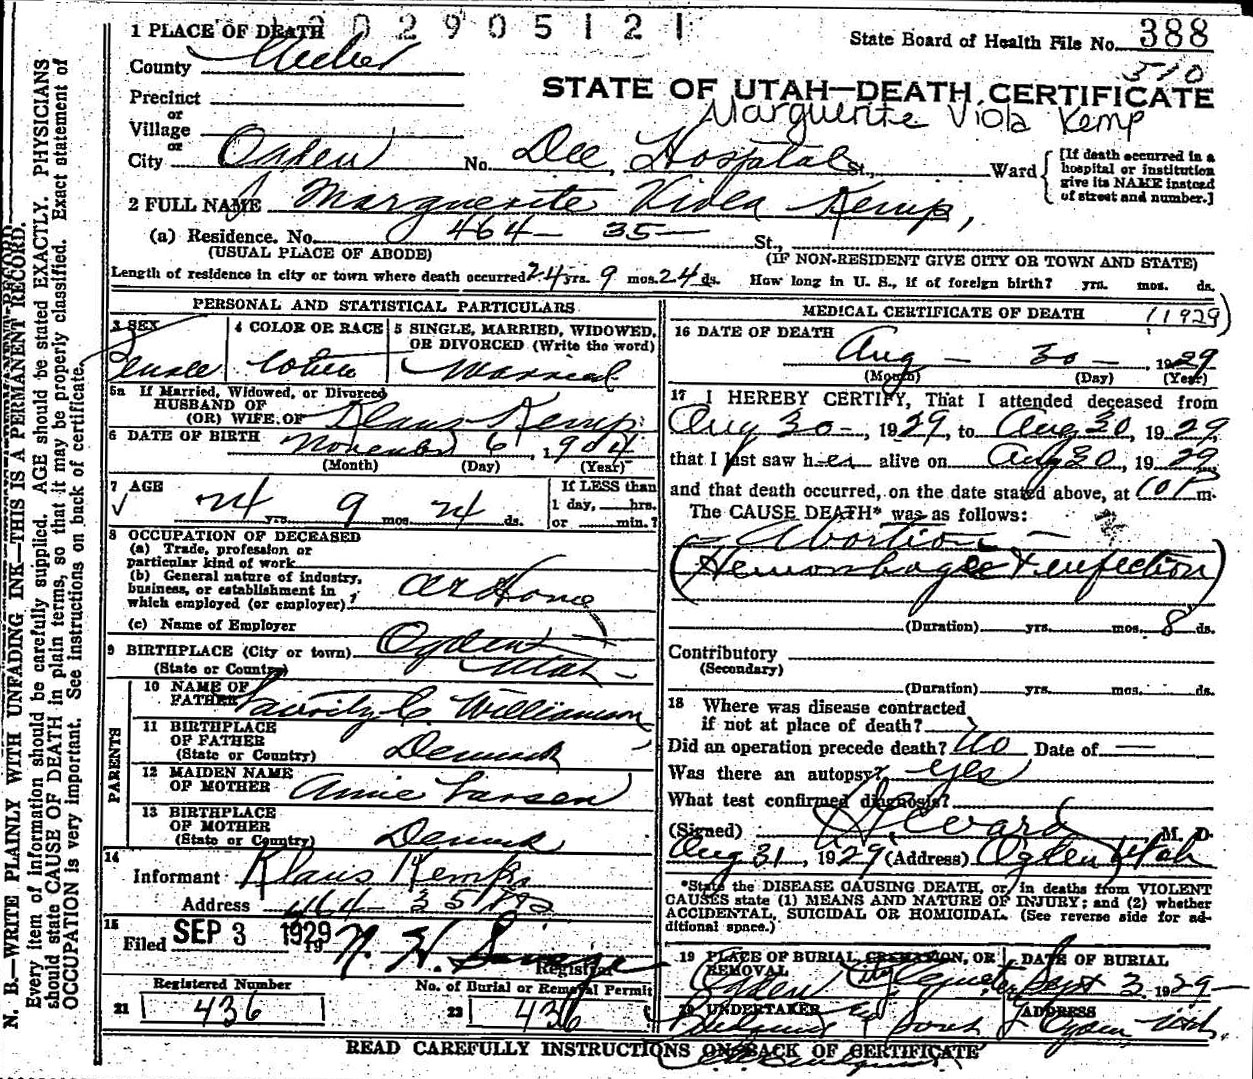 302905121
1 PLACE OF DEATH
State Board of Health File No. 388
510
County Weber
STATE OF UTAH—DEATH CERTIFICATE
Precinct
or
Village
Marguerite Viola Kemp
or
City Ogden No. Dee Hospital St., Ward
[If death occurred in a hospital or institution give its NAME instead of street and number.]
2 FULL NAME Marguerite Viola Kemp,
(a) Residence. No. 464 - 35 - St.,
(USUAL PLACE OF ABODE) (IF NON-RESIDENT GIVE CITY OR TOWN AND STATE)
Length of residence in city or town where death occurred 24 yrs. 9 mos. 24 ds. How long in U. S., if of foreign birth? yrs. mos. ds.
PERSONAL AND STATISTICAL PARTICULARS
3 SEX
Female
4 COLOR OR RACE
White
5 SINGLE, MARRIED, WIDOWED,
OR DIVORCED (Write the word)
Married
5a If Married, Widowed, or Divorced
HUSBAND OF
(OR) WIFE OF Klaus Kemp
6 DATE OF BIRTH November 6, 1904
(Month) (Day) (Year)
7 AGE
24 yrs. 9 mos. 24 ds.
If LESS than
1 day, hrs.
or min.?
8 OCCUPATION OF DECEASED
(a) Trade, profession or
particular kind of work
(b) General nature of industry,
business, or establishment in
which employed (or employer)
At Home
(c) Name of Employer
9 BIRTHPLACE (City or town) Ogden
(State or Country) Utah
PARENTS
10 NAME OF
FATHER Lauritz C. Williamson
11 BIRTHPLACE
OF FATHER
(State or Country) Denmark
12 MAIDEN NAME
OF MOTHER Annie Larsen
13 BIRTHPLACE
OF MOTHER
(State or Country) Denmark
14
Informant Klaus Kemp
Address 464 - 35
15
Filed SEP 3 1929 19
Registrar
Registered Number
21 436
No. of Burial or Removal Permit
22 436
MEDICAL CERTIFICATE OF DEATH (1929)
16 DATE OF DEATH
Aug - 30 - 1929
(Month) (Day) (Year)
17 I HEREBY CERTIFY, That I attended deceased from
Aug 30 -, 1929, to Aug 30, 1929,
that I last saw her alive on Aug 30, 1929
and that death occurred, on the date stated above, at 10 P m.
The CAUSE DEATH* was as follows:
Abortion -
(Hemorrhage & infection)
(Duration) yrs. mos. 8 ds.
Contributory
(Secondary)
(Duration) yrs. mos. ds.
18 Where was disease contracted
if not at place of death?
Did an operation precede death? No Date of —
Was there an autopsy? yes
What test confirmed diagnosis?
(Signed) M. D.
Aug 31, 1929 (Address) Ogden Utah
*State the DISEASE CAUSING DEATH, or, in deaths from VIOLENT
CAUSES state (1) MEANS AND NATURE OF INJURY; and (2) whether
ACCIDENTAL, SUICIDAL OR HOMICIDAL. (See reverse side for ad-
ditional space.)
19 PLACE OF BURIAL, CREMATION, OR
REMOVAL
Ogden City Cemetery
DATE OF BURIAL
Sept 3 1929
20 UNDERTAKER
& Sons
ADDRESS
Ogden Utah.
READ CAREFULLY INSTRUCTIONS ON BACK OF CERTIFICATE
N. B.—WRITE PLAINLY WITH UNFADING INK—THIS IS A PERMANENT RECORD.
Every item of information should be carefully supplied. AGE should be stated EXACTLY. PHYSICIANS
should state CAUSE OF DEATH in plain terms, so that it may be properly classified. Exact statement of
OCCUPATION is very important. See instructions on back of certificate.